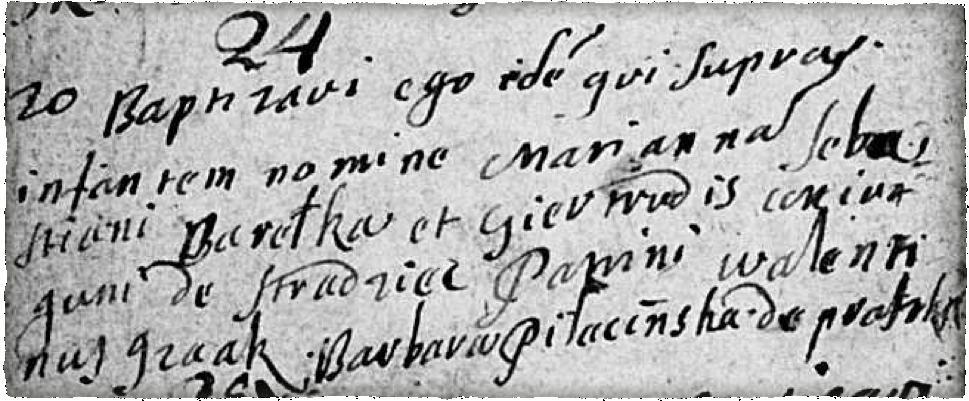 24
20 Baptizavi ego idē qui supra
infantem nomine Marianna Seba
stiani Barełka et Giertrudis coniu
gum de Stradziec Patrini walenti
nus Barbara de